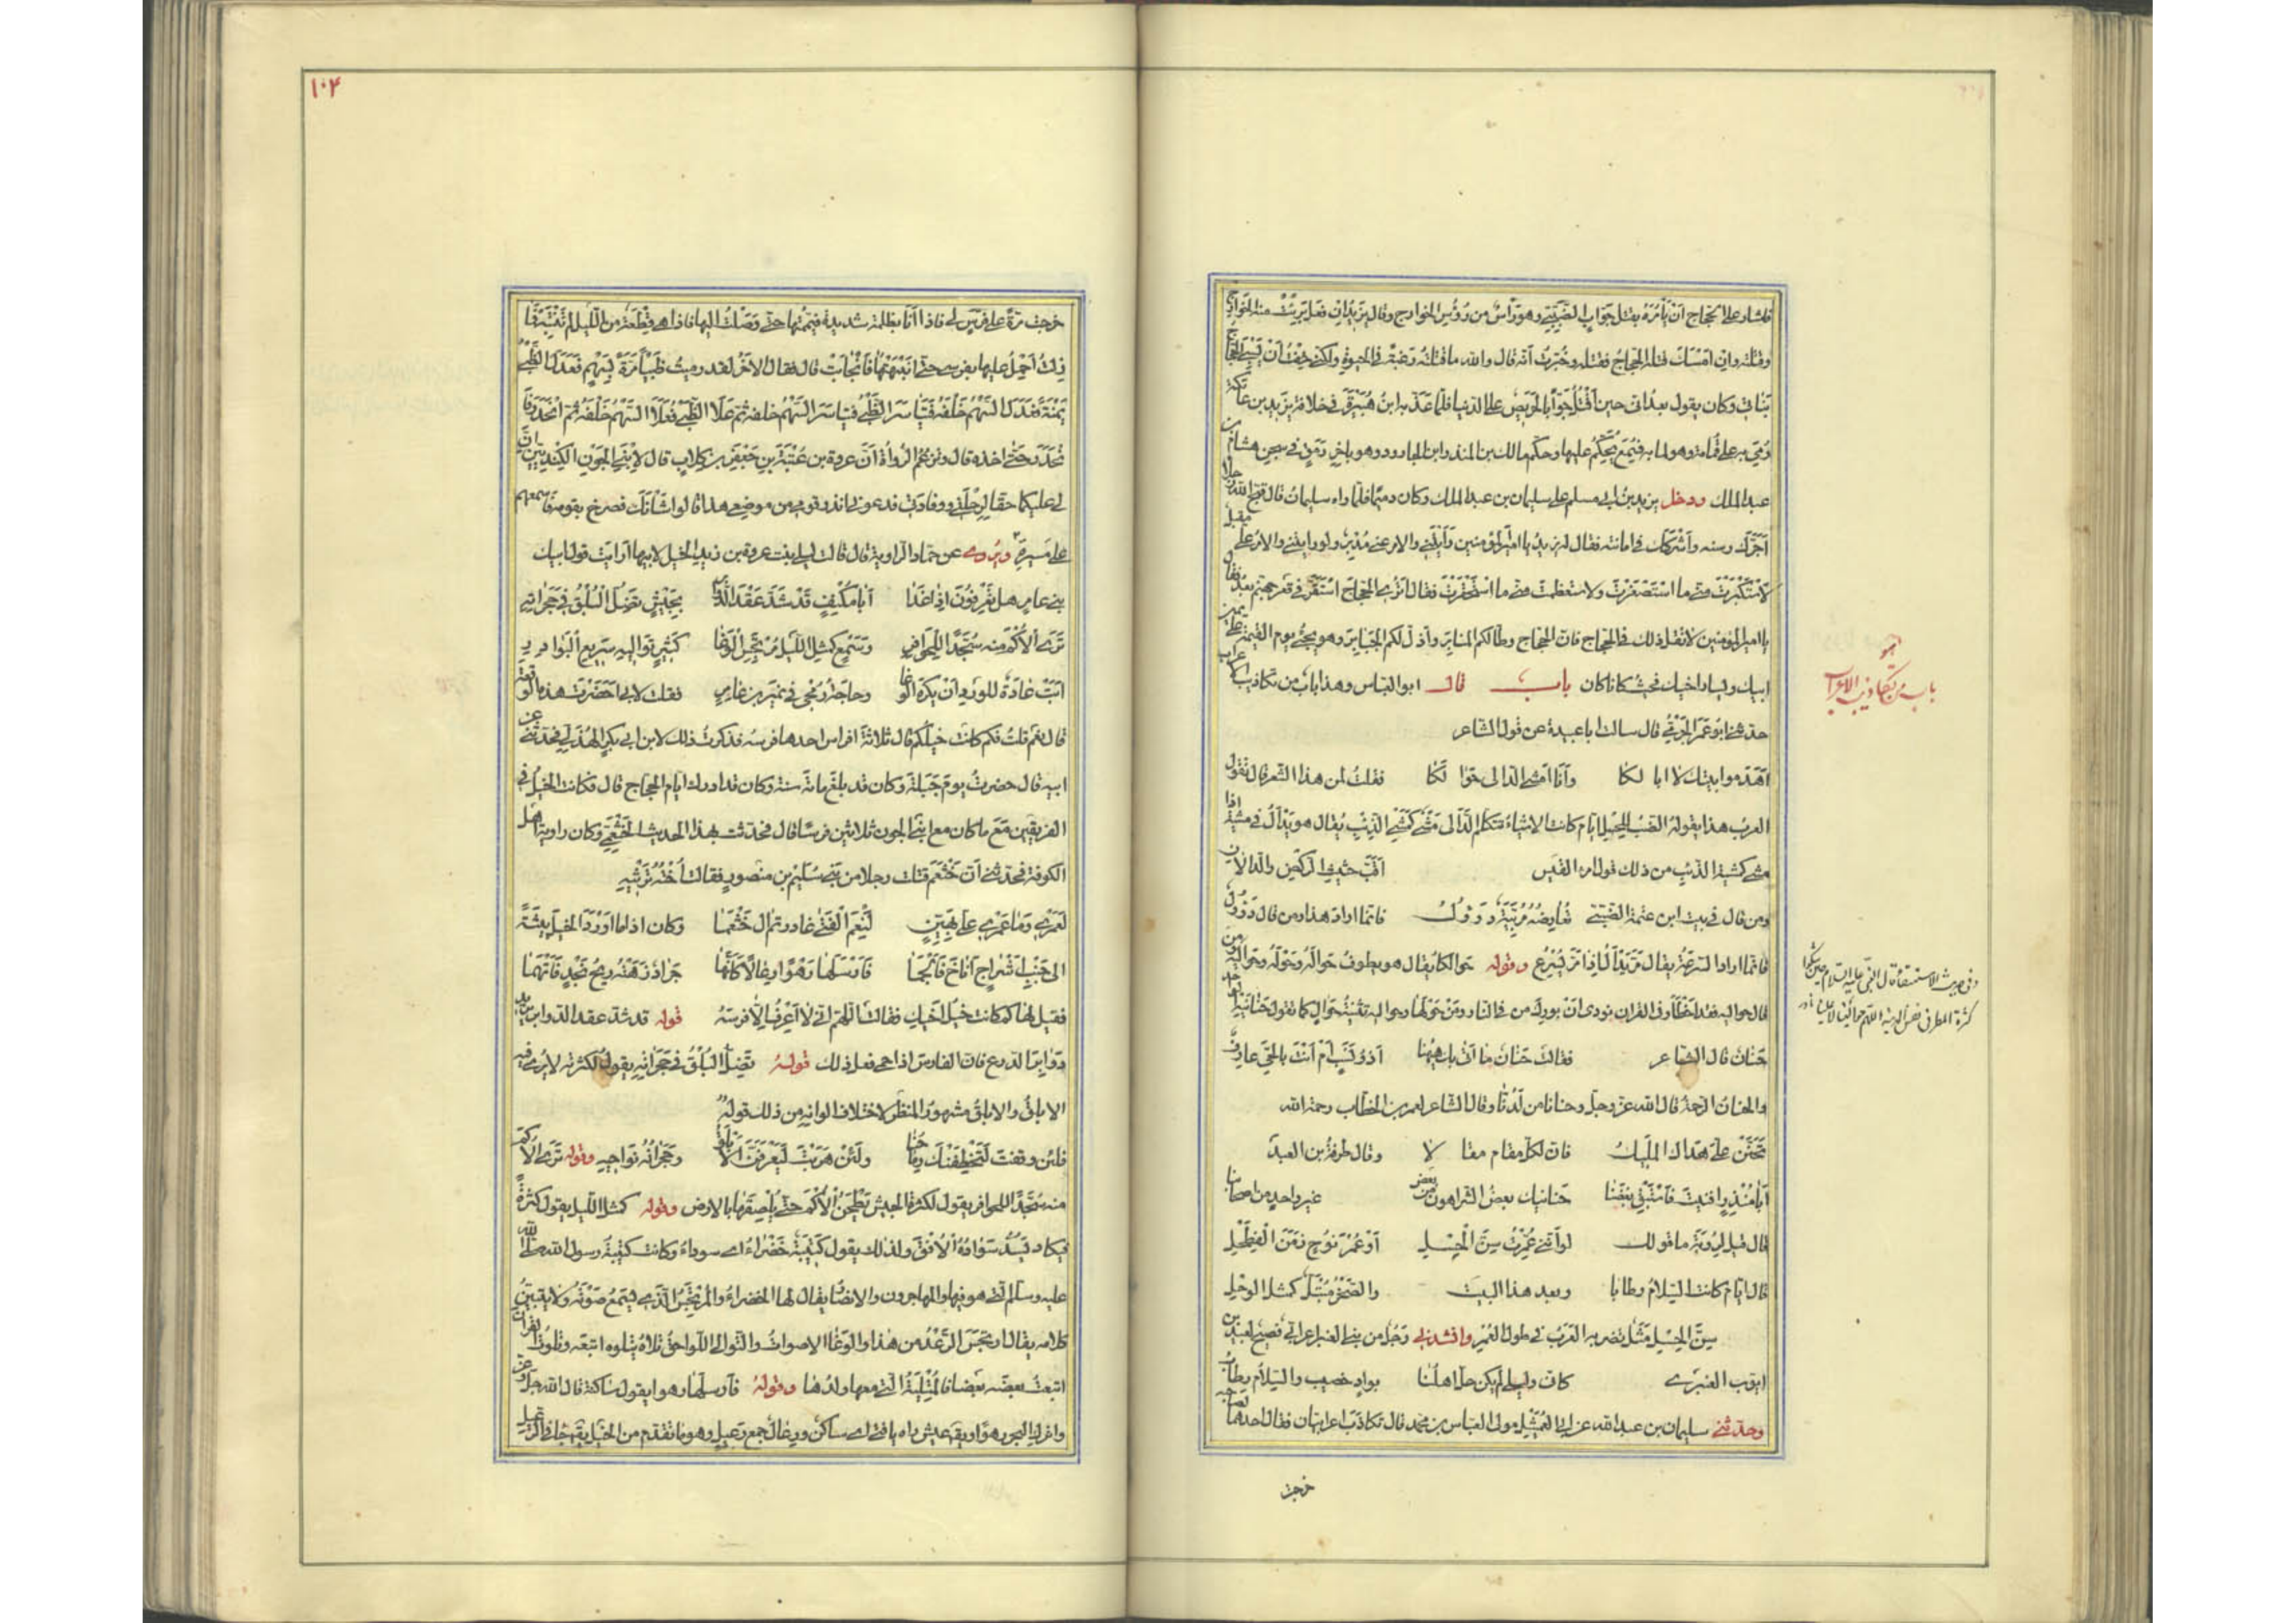 فاشار على الحجاج ان يأمره بقتل جواب الضبى وهو رأس من رؤس الخوارج وقال يزيد ان فعل برئت منه الخوارج
وقتلته وان امسك قتله الحجاج فقتله وخبرت انه قال والله ما قتلته رغبة فى الحيوة ولكنى خفت ان يسبى الحجاج
بناتى وكان يقول بعد انى حين اقتل جوابا لحريص على الدنيا فلما عذبه ابن هبيرة فى خلافة يزيد بن عاتكة
رمى به على قمامة وهو لما به فسمع يحكم عليها وحكم مالك بن المنذر ابن الجارود وهو باخر رمق فى سجن هشام بن
عبد الملك ودخل يزيد بن ابى مسلم على سليمان بن عبد الملك وكان دميما فلما راه سليمان قال قبح الله رجلا
اجرك رسنه واشركك فى امانته فقال له يزيد يا امير المؤمنين رأيتنى والامر عنى مدبر ولو رايتنى والامر على مقبل
لاستكبرت منى ما استصغرت ولاستعظمت منى ما استحقرت فقال اترى الحجاج استقر فى قعر جهنم بعد فقال
يا امير المؤمنين لا تقل ذلك فى الحجاج فان الحجاج وطأ لكم المنابر واذل لكم الجبابر وهو يجئ يوم القيمة عن يمين
ابيك ويسار اخيك فحيث كانا كان باب قال ابو العباس وهذا باب من تكاذيب الاعراب
حدثنى ابو عمر الجرمى قال سالت ابا عبيدة عن قول الشاعر
اهدموا بيتك لا ابا لكا وانا امشى الدالى حوالكا فقلت لمن هذا الشعر قال تقول
العرب هذا يقوله الضب للحسل ايام كانت الاشياء تتكلم الدألى مشى كمشى الذئب يقال هو يدأل فى مشيه اذا
مشى كمشية الذئب من ذلك قول امرء القيس اقب حثيث الركض والدالان
ومن قال فى بيت ابن عنمة الضبى تعارضه مربية دءول فانما اراد هذا ومن قال ذؤول
فانما اراد السرعة يقال مر يذأل اذا مر يسرع وقوله حوالكا يقال هو يطوف حواله وحوله وحواليه ومن
قال حواليه فقد اخطأ وفى القران نودى ان بورك من فى النار ومن حولها وحواليه تثنية حوال كما تقول حنانيه الواحد
حنان قال الشاعر فقالت حنان ما اتى بك ههنا اذو نسب ام انت بالحى عارف
والحنان الرحمة قال الله عز وجل وحنانا من لدنا وقال الشاعر لعمر بن الخطاب رحمة الله
تحنن على هداك المليك فان لكل مقام مقالا وقال طرفة بن العبد
ابا منذر افنيت فاستبق بعضنا حنانيك بعض الشر اهون من بعض غير واحد من اصحابنا
قال قيل لرؤبة ما قولك لو اننى عمرت سن الحسل او عمر نوح زمن الفطحل
قال ايام كانت السلام رطابا وبعد هذا البيت والصخر مبتل كمثل الوحل
سن الحسل مثل تضربه العرب فى طول العمر وانشدنى رجل من بنى العنبر اعرابى فصيح لعبيد بن
ايوب العنبرى كان وليلى لم يكن حل اهلنا بواد خصيب والسلام رطاب
وحدثنى سليمان بن عبد الله عن ابى العميثل مولى العباس بن محمد قال تكاذب اعرابيان فقال احدهما لصاحبه
خرجت
هو
باب من تكاذيب الاعراب
وفى حديث الاستسقاء قال النبى عليه السلام حين شكوا
كثرة المطر فى نفس المدينة اللهم حوالينا ولا علينا
١٠٤
خرجت مرة على فرس لى فاذا انا بظلمة شديدة فيممتها حتى وصلت اليها فاذا هى قطعة من الليل لم تنتبه فما
زلت احمل عليها بفرسى حتى انبهتها فانجابت قال فقال الاخر لقد رميت ظبيا مرة بسهم فعدل الظبى
يمنة فعدل السهم خلفه فتياسر الظبى فتياسر السهم خلفه ثم علا الظبى فعلا السهم خلفه ثم انحدر فا
نحدر حتى اخذه قال وتزعم الرواة ان عروة بن عتبة بن جعفر بن كلاب قال لابنى الجون الكنديين ان
لى عليكما حقا لرحلتى ووفادتى فدعونى انذر قومى من موضعى هذا قالوا شأنك فصرخ بقومه فاسمعهم
على مسيرة ويروى عن حماد الراوية قال قالت ليلى بنت عروة بن زيد الخيل لابيها ارايت قول ابيك
بنى عامر هل تعرفون اذا غدا ابا مكنف قد شد عقد الدوابر بجيش تضل البلق فى حجراته
ترى الاكم منه سجدا للحوافر وجمع كمثل الليل مرتجس الوغا كثير تواليه سريع البوادر
ابت عادة للورد ان يكره الوغا وحاجة رمحى فى نمير بن عامر فقلت لابى احضرت هذه الوقعة
قال نعم قلت فكم كانت خيلكم قال ثلاثة افراس احدها فرسه فذكرت ذلك لابن ابى بكر الهذلى فحدثنى عن
ابيه قال حضرت يوم جبلة وكان قد بلغ مائة سنة وكان قد ادرك ايام الحجاج قال فكانت الخيل فى
الفريقين مع ما كان مع ابنى الجون ثلاثين فرسا قال فحدثت بهذا الحديث الخثعمى وكان راوية اهل
الكوفة فحدثنى ان خثعم قتلت رجلا من بنى سليم بن منصور فقالت اخته ترثيه
لعمرى وما عمرى على بهين لنعم الفتى غادرتم ال خثعما وكان اذا ما اورد الخيل بيشة
الى جنب اشراج اناخ فالجما فارسلها رهوا رعالا كانها جراد زهته ريح نجد فاتهما
فقيل لها كم كانت خيل اخيك فقالت اللهم انى لا اعرف الا فرسه قوله قد شد عقد الدوابر يريد
دوابر الدرع فان الفارس اذا حمى فعل ذلك قوله تضل البلق فى حجراته يقول لكثرته لا يرى فيه
الابلق والابلق مشهور المنظر لاختلاف الوانه من ذلك قوله
فلئن وقفت لتخطفنك رماحنا ولئن هربت ليعرفن الابلق وحجراته نواحيه وقوله ترى الاكم
منه سجدا للحوافر يقول لكثرة الجيش يطحن الاكم حتى يلصقها بالارض وقوله كمثل الليل يقول كثرة
فيكاد يسد سواده الافق ولذلك يقول كتيبة خضراء اى سوداء وكانت كتيبة رسول الله صلى الله
عليه وسلم التى هو فيها والمهاجرون والانصار يقال لها الخضراء والمرتجس الذى يسمع صوته ولا يتبين
كلامه يقال ارتجس الرعد من هذا والوغا الاصوات والتوالى اللواحق تلاه يتلوه اتبعه وتلوت القران
اتبعت بعضه بعضا فالمتلية التى معها ولدها وقوله فارسلها رهوا يقول ساكنة قال الله جل وعز
واترك البحر رهوا ويقال عيش راه يا فتى اى ساكن ورعال جمع رعيل وهو ما تقدم من الخيل يقال جاء فى الرعيل